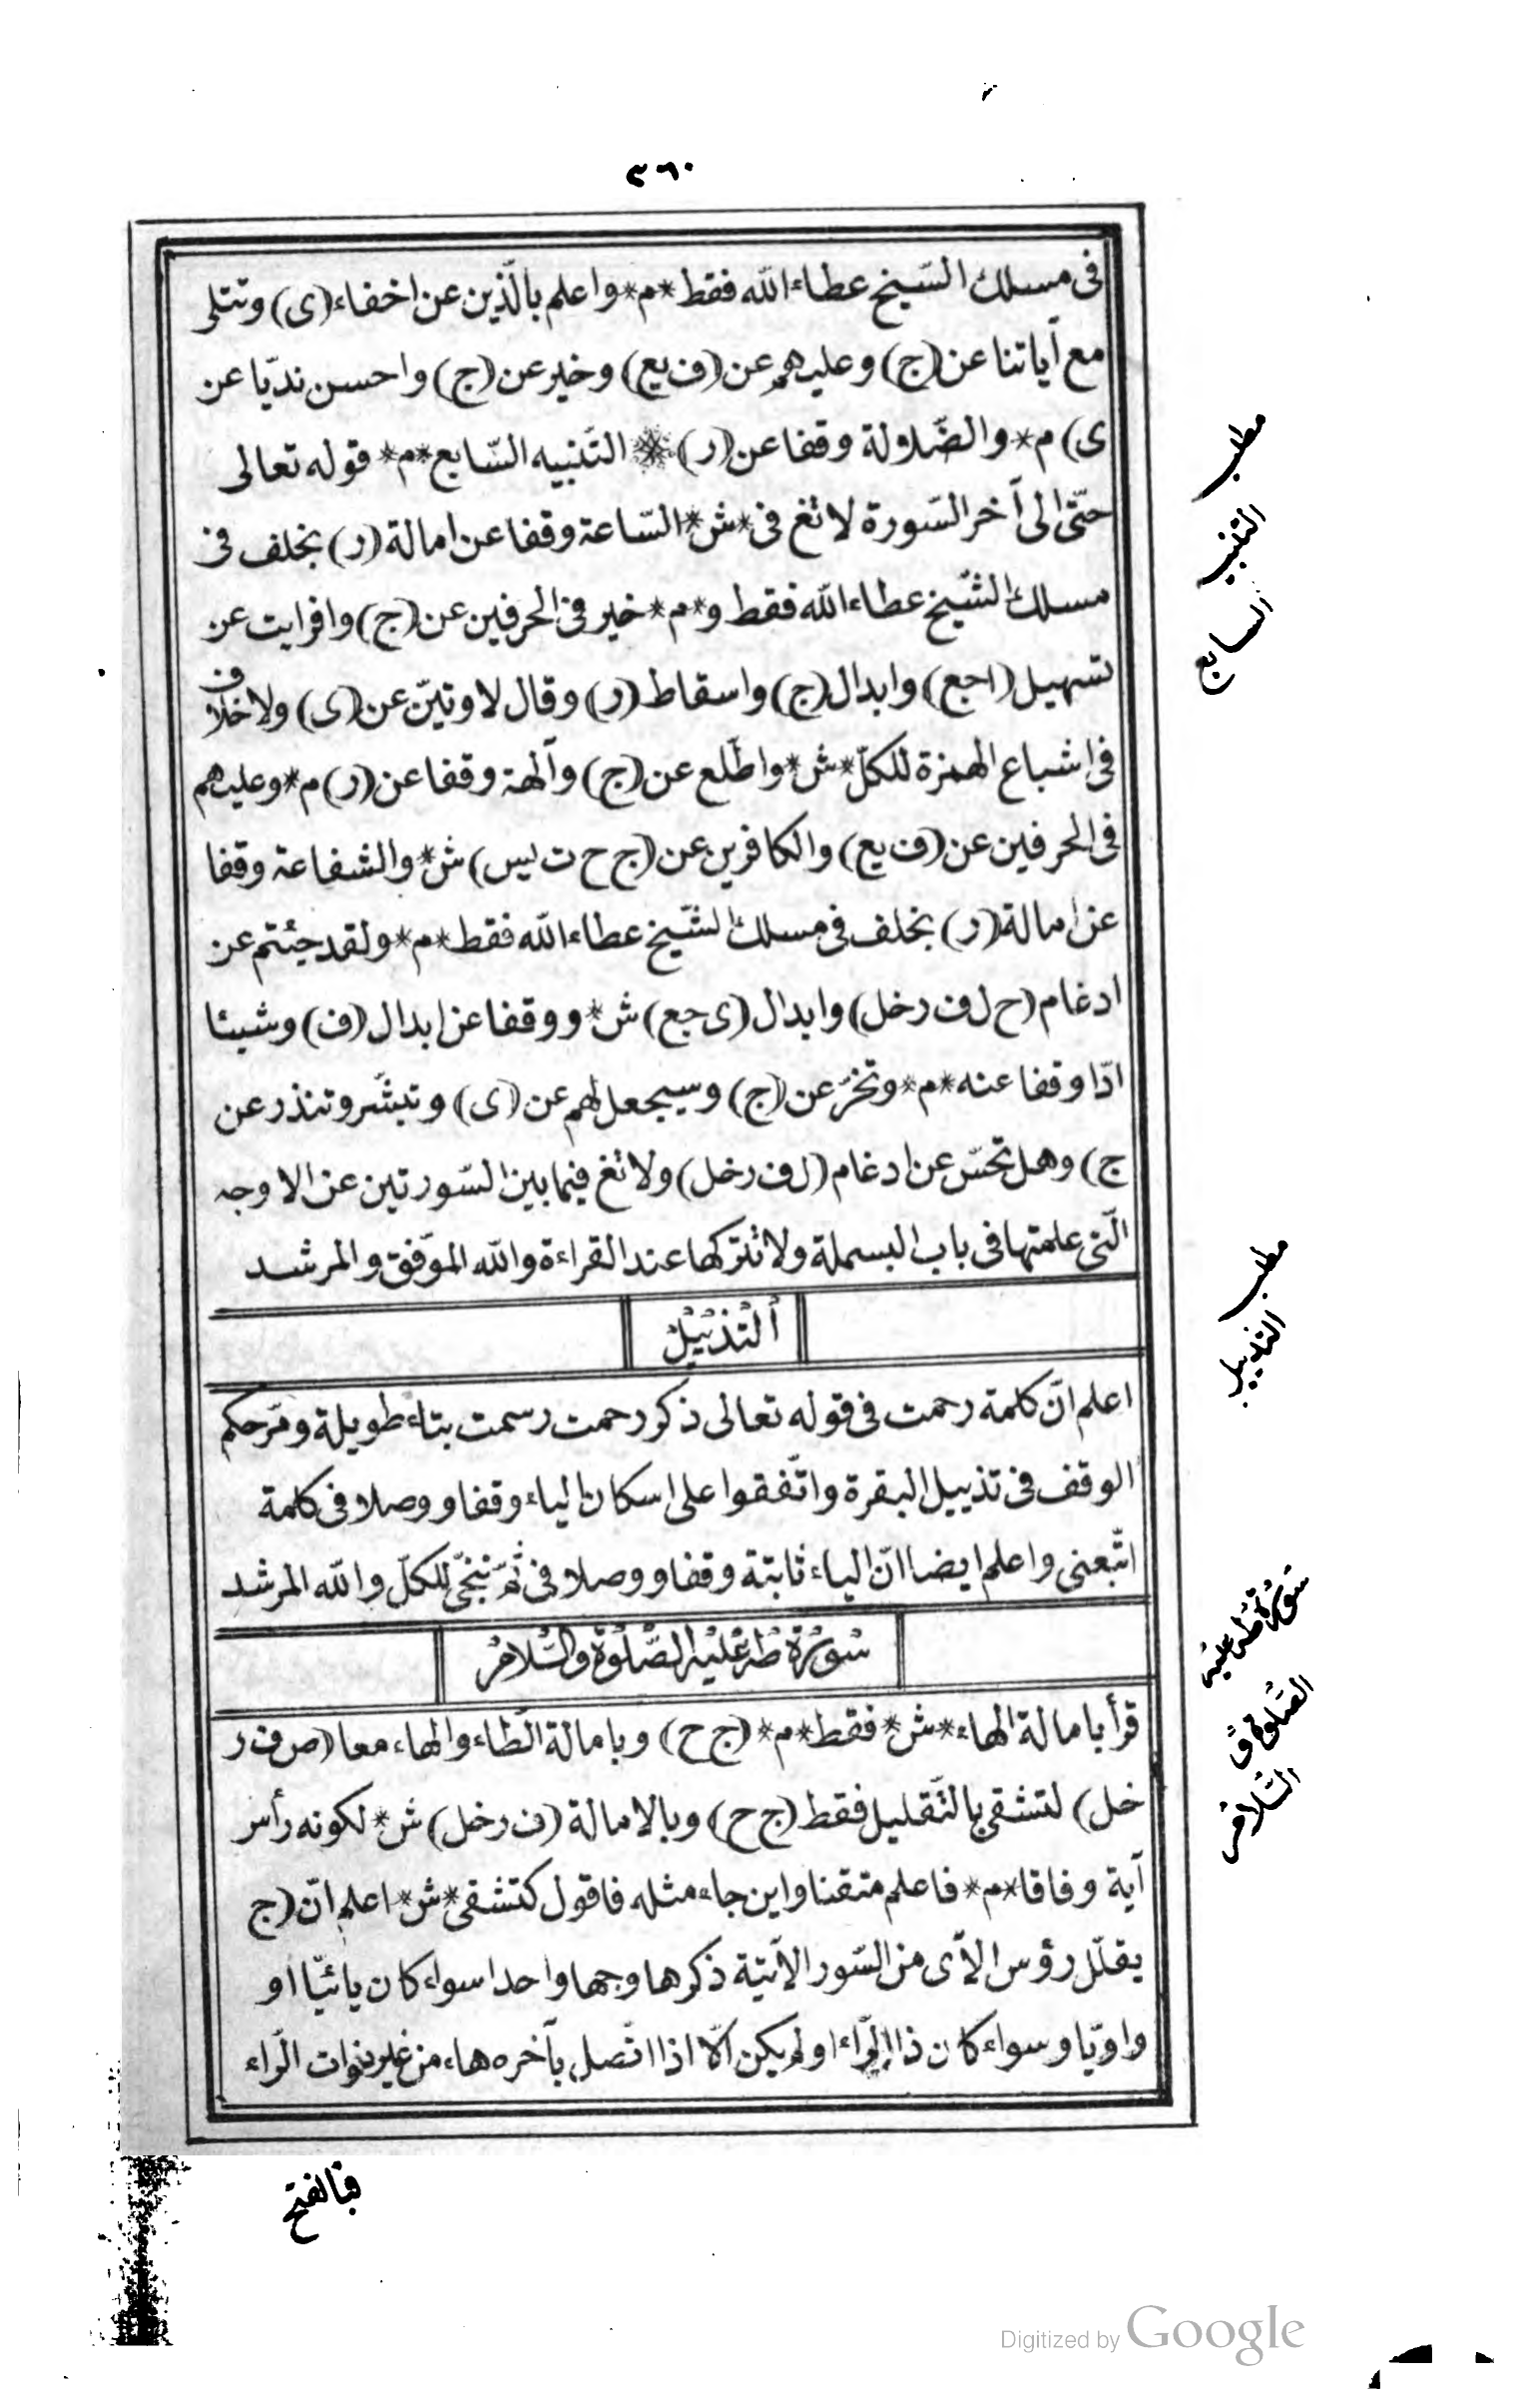 ٣٦٠
فى مسلك الشيخ عطاء الله فقط *م* واعلم بالّذين عن اخفاء (ى) وتتلى
مع آياتنا عن (ج) وعليهم عن (ف يع) وخير عن (ج) واحسن نديّا عن
ى) م* والضّلولة وقفا عن (ر) * التّنبيه السّابع *م* قوله تعالى
حتّى الى آخر السّورة لا تغ فى *ش* السّاعة وقفا عن امالة (ر) بخلف فى
مسلك الشّيخ عطاء الله فقط و*م* خير فى الحرفين عن (ج) وافرايت عن
تسهيل (اجع) وابدال (ج) واسقاط (ر) وقال لاوتينّ عن (ى) ولا خلاف
فى اشباع الهمزة للكلّ *ش* واطّلع عن (ج) وآلهة وقفا عن (ر) م* وعليهم
فى الحرفين عن (ف يع) والكافرين عن (ج ح ت يس) ش* والشفاعة وقفا
عن امالة (ر) بخلف فى مسلك الشّيخ عطاء الله فقط *م* ولقد جئتم عن
ادغام (ح ل ف ر خل) وابدال (ى جع) ش* ووقفا عن ابدال (ف) وشيئا
ادّا وقفا عنه *م* وتخرّ عن (ج) وسيجعل لهم عن (ى) وتبشّر وتنذر عن
ج) وهل تحسّ عن ادغام (ل ف ر خل) ولا تغ فيما بين السّورتين عن الاوجه
الّتى علمتها فى باب البسملة ولا تتركها عند القراءة والله الموّفق والمرشد
التذييل
اعلم انّ كلمة رحمت فى قوله تعالى ذكر رحمت رسمت بتاء طويلة ومرّ حكم
الوقف فى تذييل البقرة واتّفقوا على اسكان الياء وقفا ووصلا فى كلمة
اتّبعنى واعلم ايضا انّ الياء ثابتة وقفا ووصلا فى ثمّ ننجّى للكلّ والله المرشد
سورة طه عليه الصّلوة والسّلام
قرأ بامالة الهاء *ش* فقط *م* (ج ح) وبامالة الطّاء والهاء معا (ص ف ر
خل) لتشقى بالتّقليل فقط (ج ح) وبالامالة (ف ر خل) ش* لكونه رأس
آية وفاقا *م* فاعلم متقنا واين جاء مثله فاقول كتشقى *ش* اعلم انّ (ج
يقلّل رؤس الآى من السّور الآتيّة ذكرها وجها واحدا سواء كان يائيّا او
واويّا وسواء كان ذا الرّاء او لم يكن الّا اذا اتّصل بآخره هاء من غير ذوات الرّاء
فبالفتح
مطلب
التنبيه
السابع
مطلب
التذييل
سورة طه عليه
الصلوة و
السلام
Digitized by Google